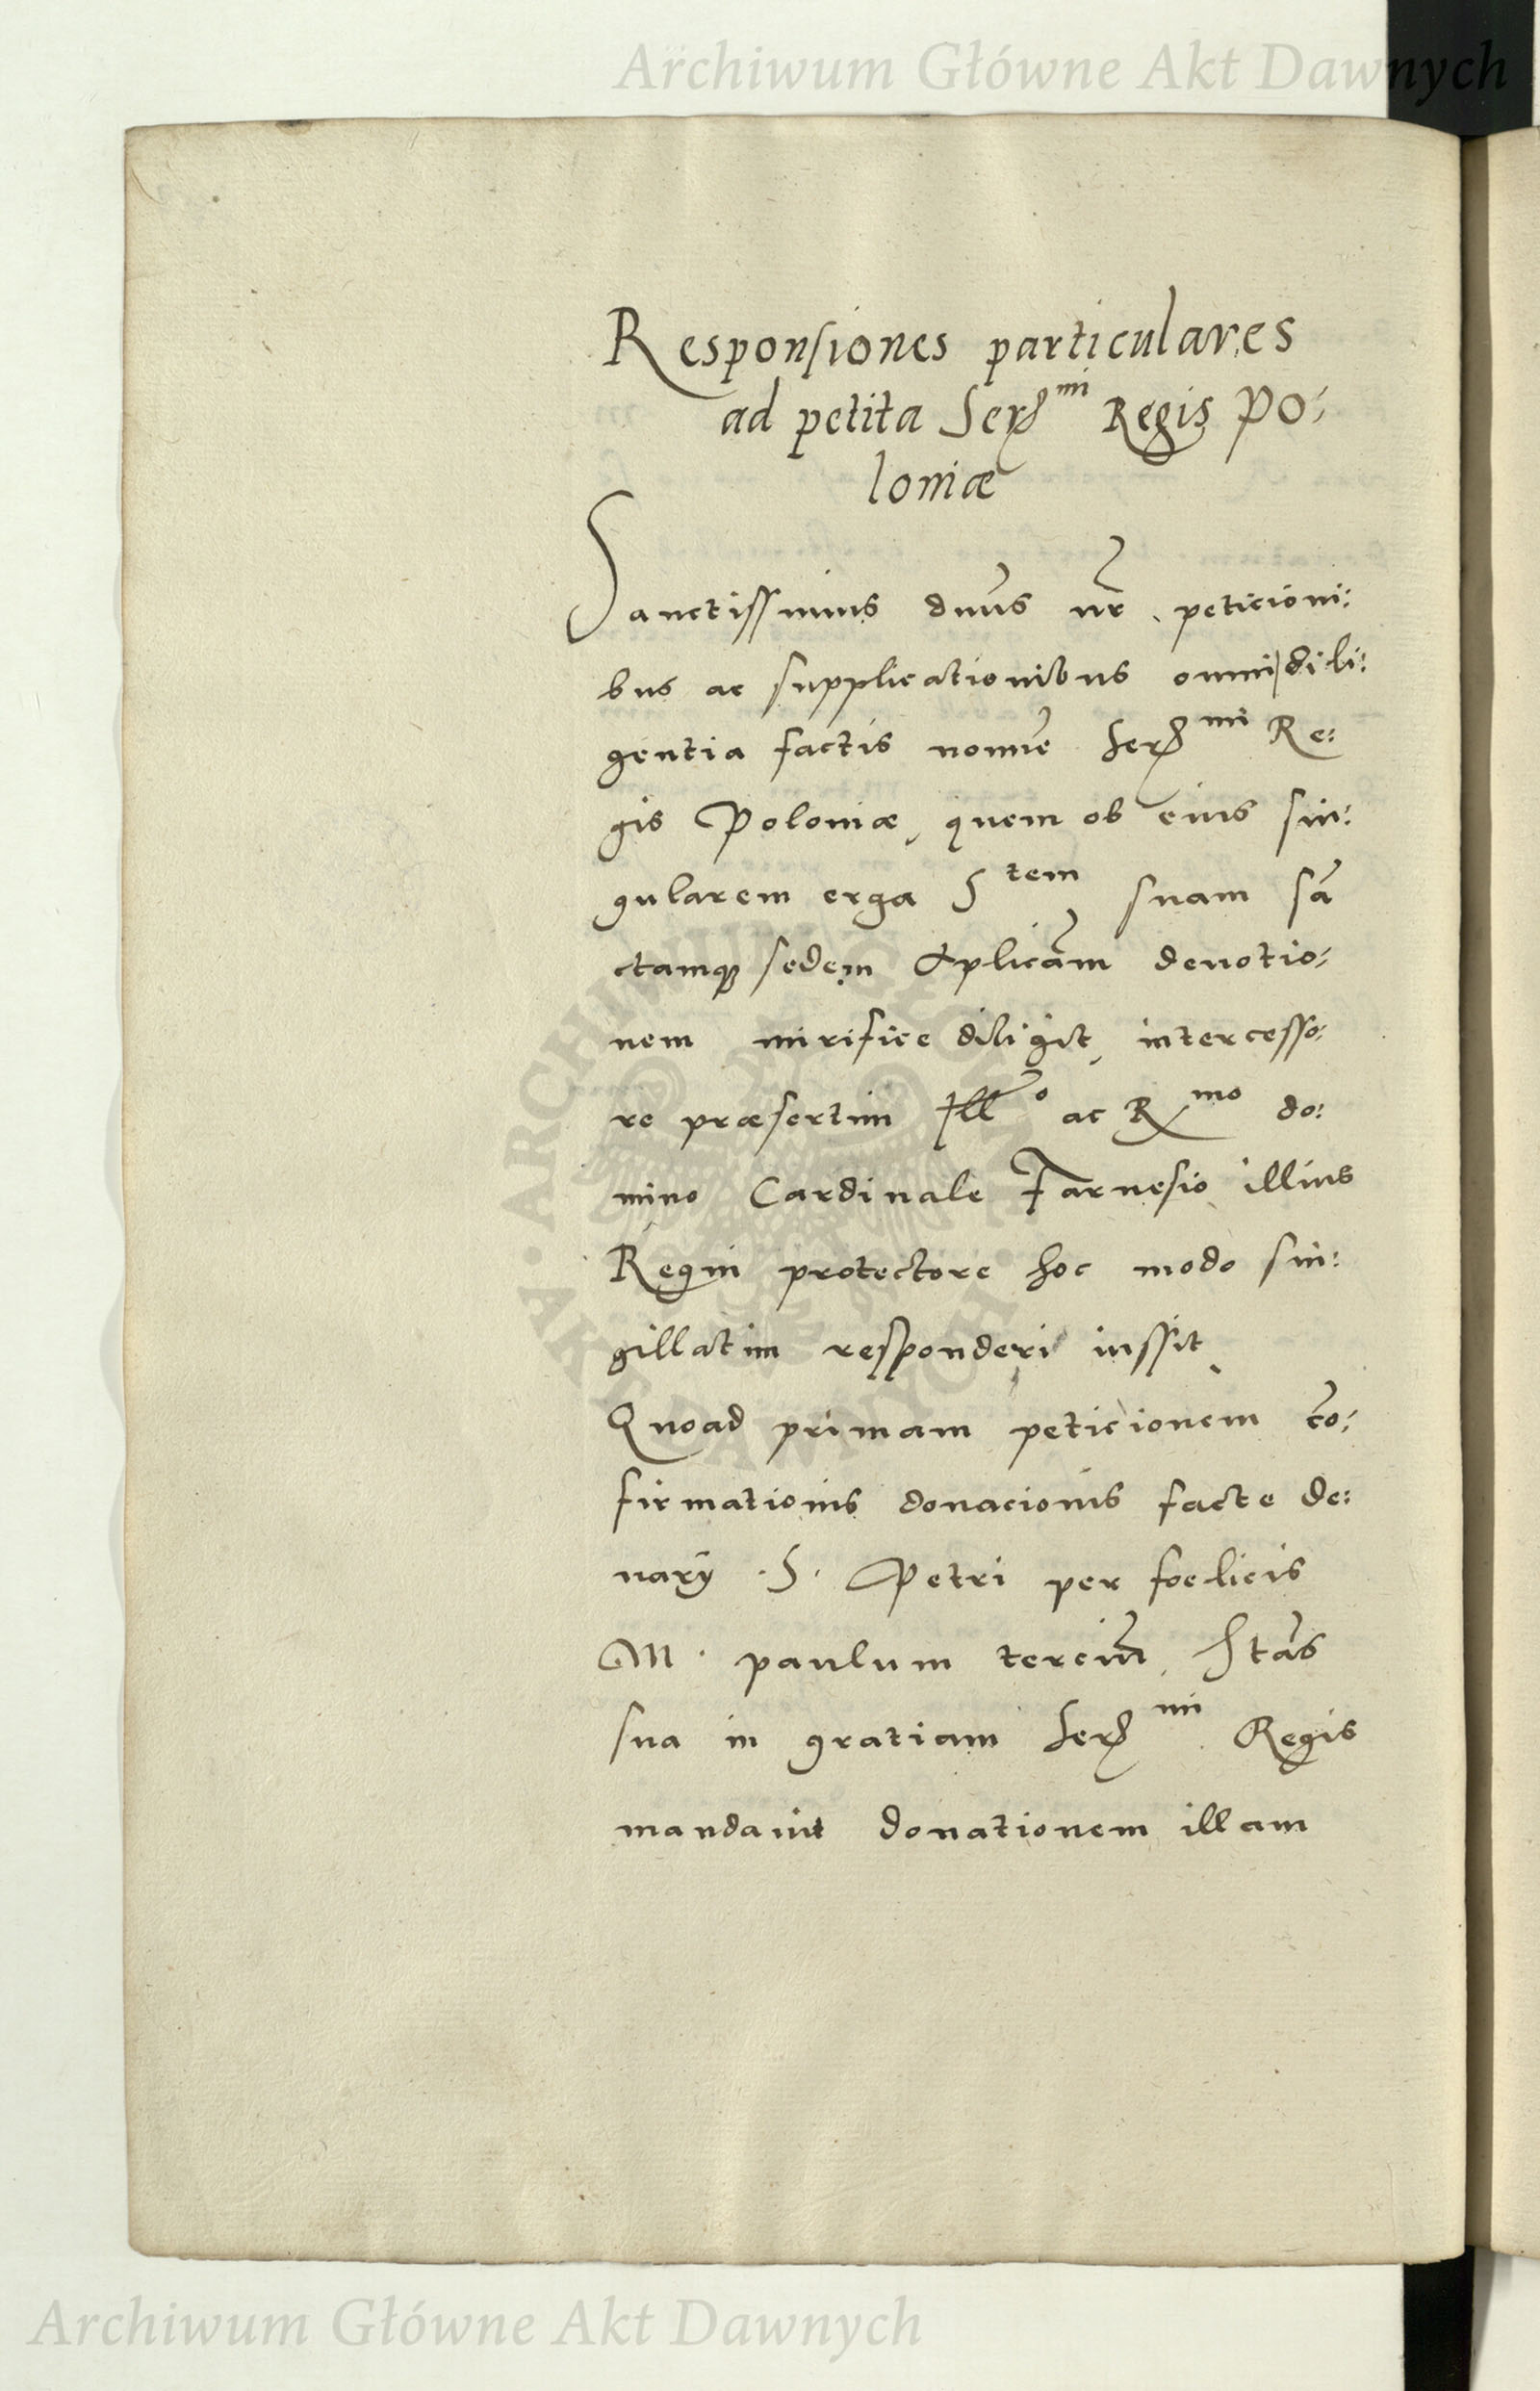 Archiwum Główne Akt Dawnych
Responsiones particulares
ad petita Ser^mi Regis Po:
loniæ
Sanctissimus dn̄us nr̄, peticioni:
bus ac supplicationibus omni dili:
gentia factis nomīe Ser^mi Re:
gis Poloniæ, quem ob eius sin:
gularem erga S^tem suam sā
ctamq; sedem Aplicām deuotio:
nem mirifice diligit, intercesso:
re præsertim Ill^o ac R^mo do:
mino Cardinale Farnesio illius
Regni protectore hoc modo sin:
gillatim responderi iussit,
Quoad primam peticionem cō:
firmationis donacionis facte de:
narÿ .S. Petri per foelicis
M. paulum terciūm, Stās
sua in gratiam Ser^mi Regis
mandauit donationem illam
ARCHIWUM GŁÓWNE · AKT DAWNYCH ·
Archiwum Główne Akt Dawnych